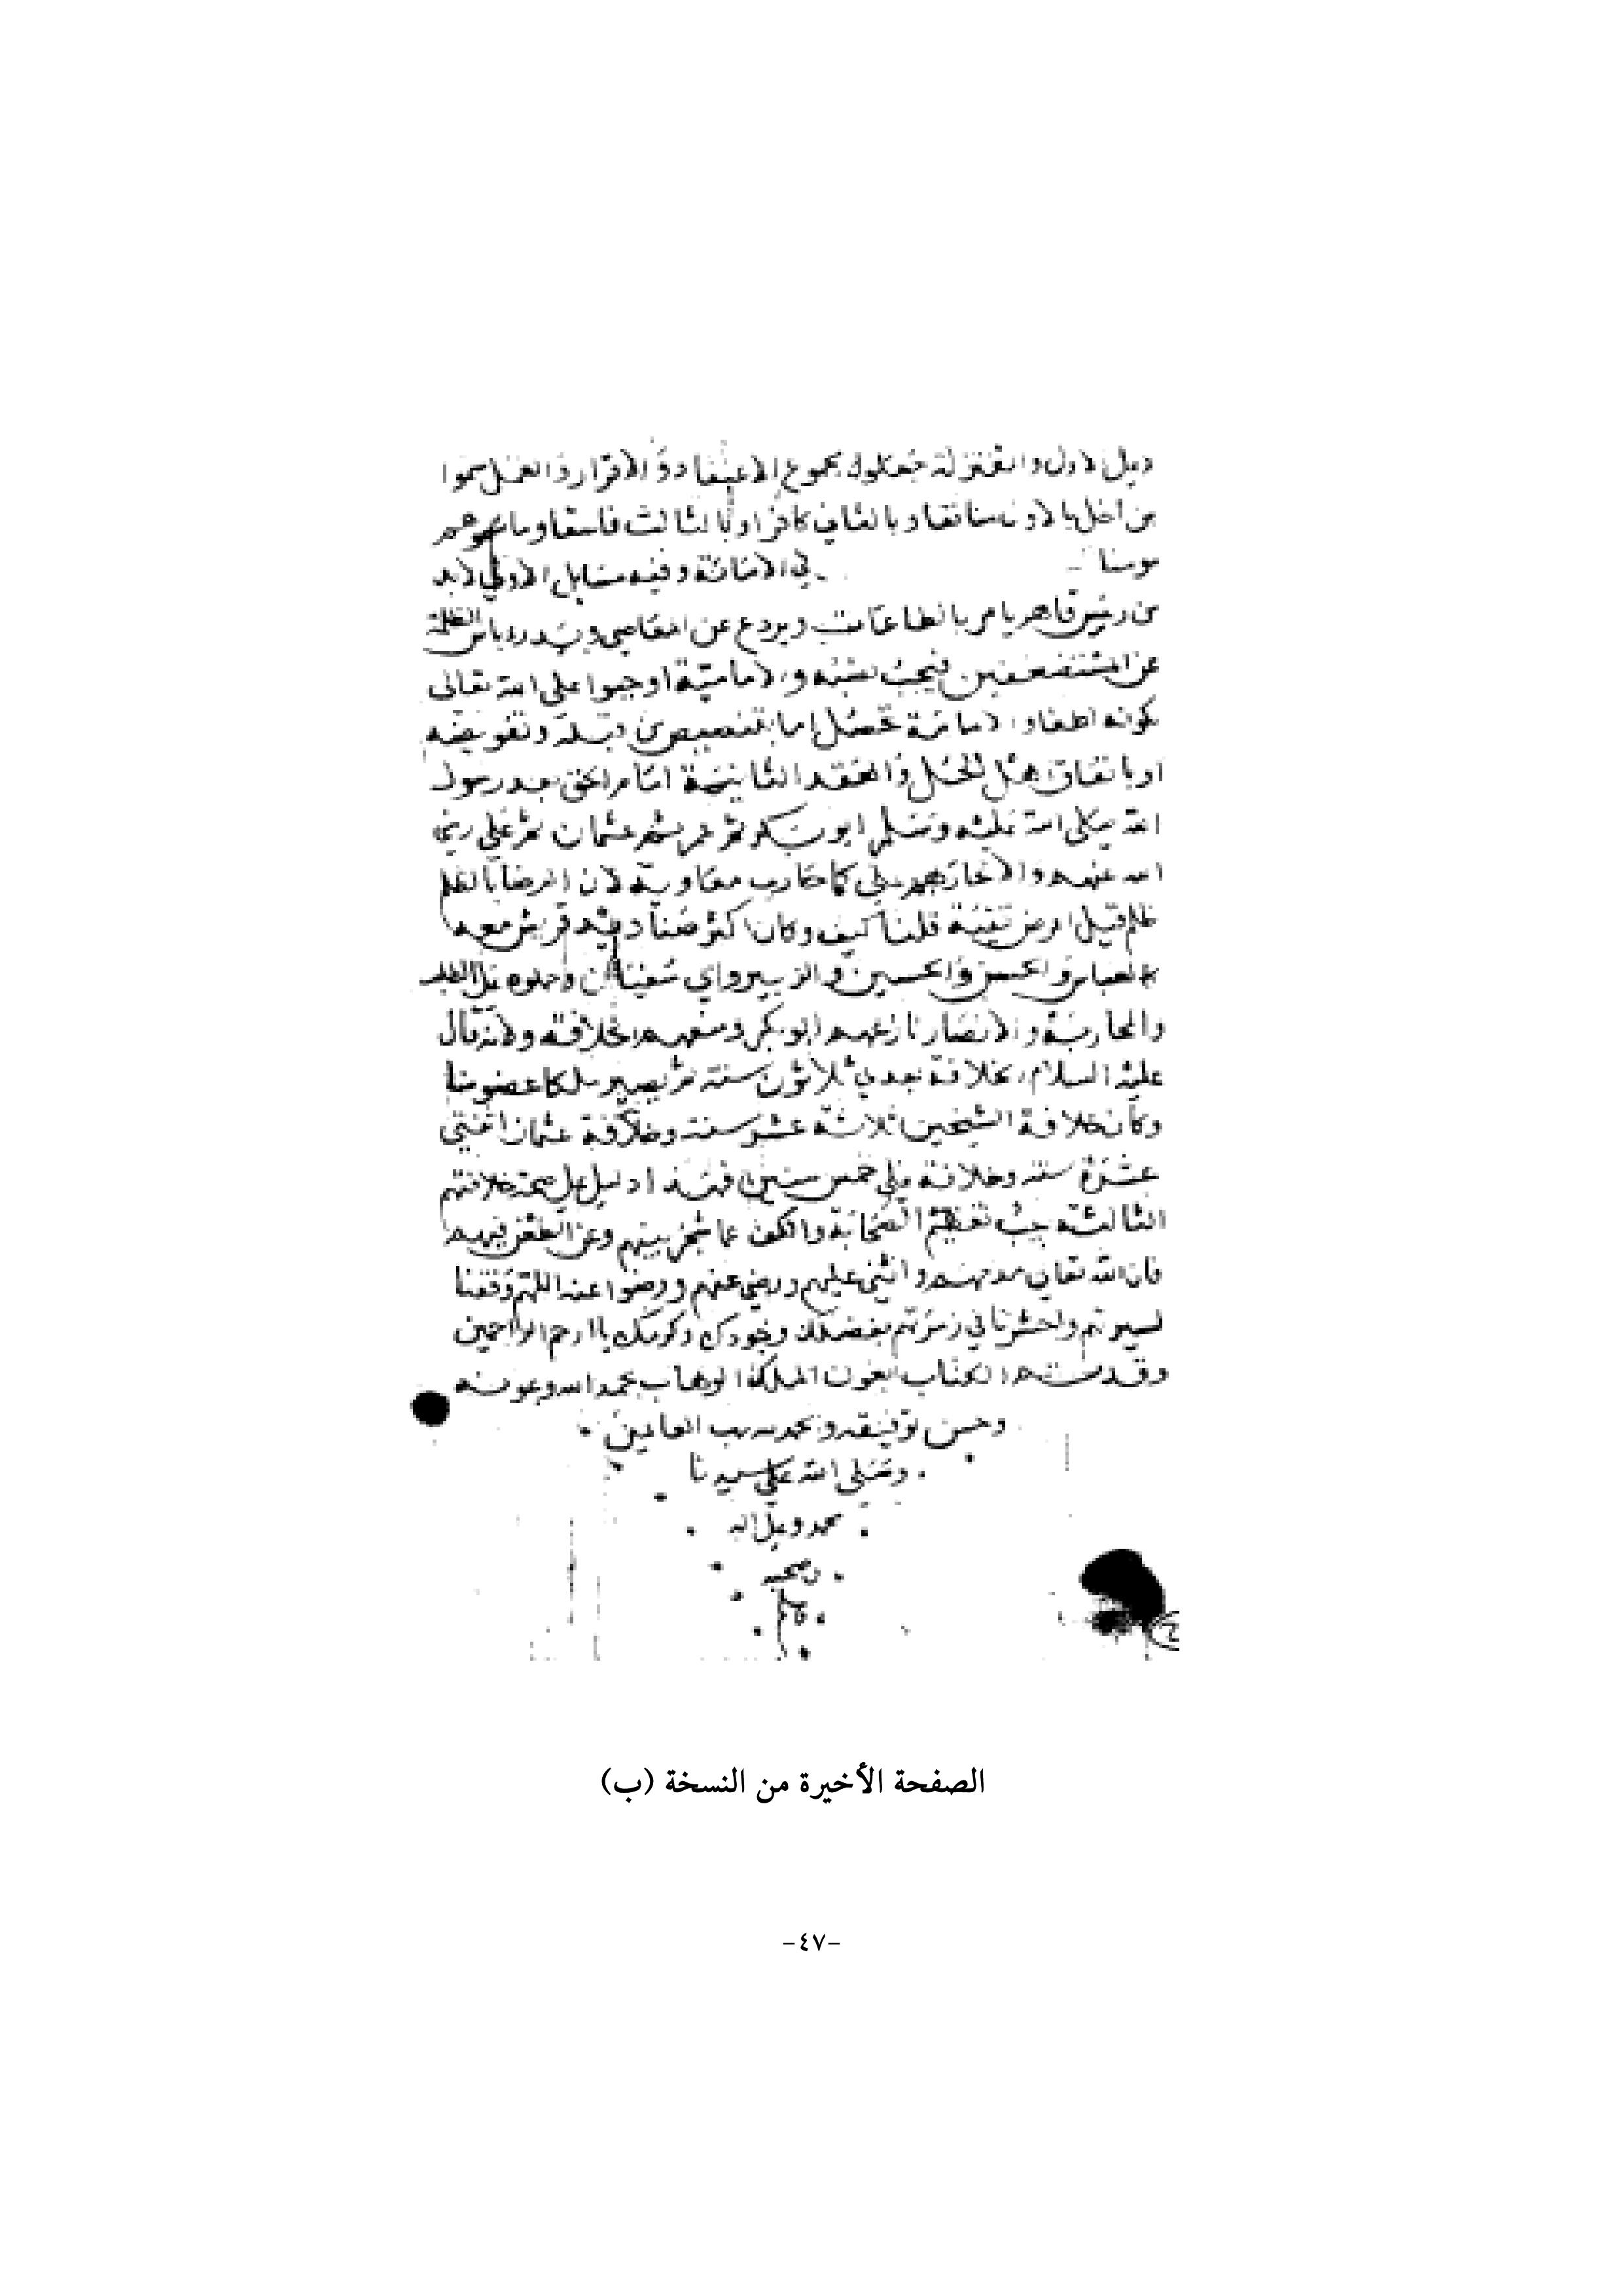 دليل الاول والمعتزلة جعلوه مجموع الاعتقاد والاقرار والعمل سموا
من اخل بالاول منافقا وبالثاني كافرا وبالثالث فاسقا وما
مومنا في الامامة وفيه مسايل الاولي لابد
من رئيس قاهر يامر بالطاعات ويردع عن المعاصي ويدرء باس الظلمة
عن المستضعفين فيجب نصبه والامامية اوجبوا علي الله تعالى
لكونه لطفا والامامة تحصل اما بتنصيص من قبله وتفويضه
او باتفاق اهل الحل والعقد الثانية امام الحق بعد رسول
الله صلى الله عليه وسلم ابو بكر ثم عمر ثم عثمان ثم علي رضي
الله عنهم والا حاربهم علي كما حارب معاوية لان الرضا بالظلم
ظلم قيل رض تقية قلنا كيف وكان اكثر صناديد قريش معه
كالعباس والحسن والحسين والزبير وابي سفيان وحملوه على الطلب
والمحاربة والانصار نازعهم ابو بكر ومنعهم الخلافة ولانه قال
عليه السلام الخلافة بعدي ثلاثون سنة ثم يصير ملكا عضوضا
وكان خلافة الشيخين ثلاثة عشر سنة وخلافة عثمان اثنتي
عشرة سنة وخلافة علي خمس سنين فهذا دليل على صحة خلافتهم
الثالثة يجب تعظيم الصحابة والكف عما شجر بينهم وعن الطعن فيهم
فان الله تعالى مدحهم واثني عليهم ورضي عنهم ورضوا عنه اللهم وفقنا
لسيرتهم واحشرنا في زمرتهم بفضلك وجودك وكرمك ياارحم الراحمين
وقد تم الكتاب بعون الملك الوهاب بحمد الله وعونه
وحسن توفيقه والحمد لله رب العالمين
وصلى الله على سيدنا
محمد وعلى اله
وصحبه
الصفحة الأخيرة من النسخة (ب)
-٤٧-